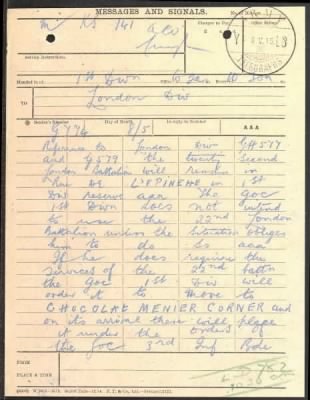 MESSAGES AND SIGNALS.
Charges to Pay
Office Stamp
Service Instructions.
Handed in at
1st Divn
TO
London Div
Sender's Number
Day of Month
In reply to Number
AAA
G 776
8/5
Reference to London Div GA 577
and G 579 the twenty second
London Battalion will remain in
Rue DE L'EPINETTE in 1st
Div reserve aaa The GOC
1st Divn does not intend
to use the 22nd London
Battalion unless the situation obliges
him to do so aaa
If he does require the
services of the 22nd battn
the GOC 1st Div will
order it to move to
CHOCOLAT MENIER CORNER and
on its arrival there will place
it under the orders of
the GOC 3rd Inf Bde
FROM
PLACE & TIME